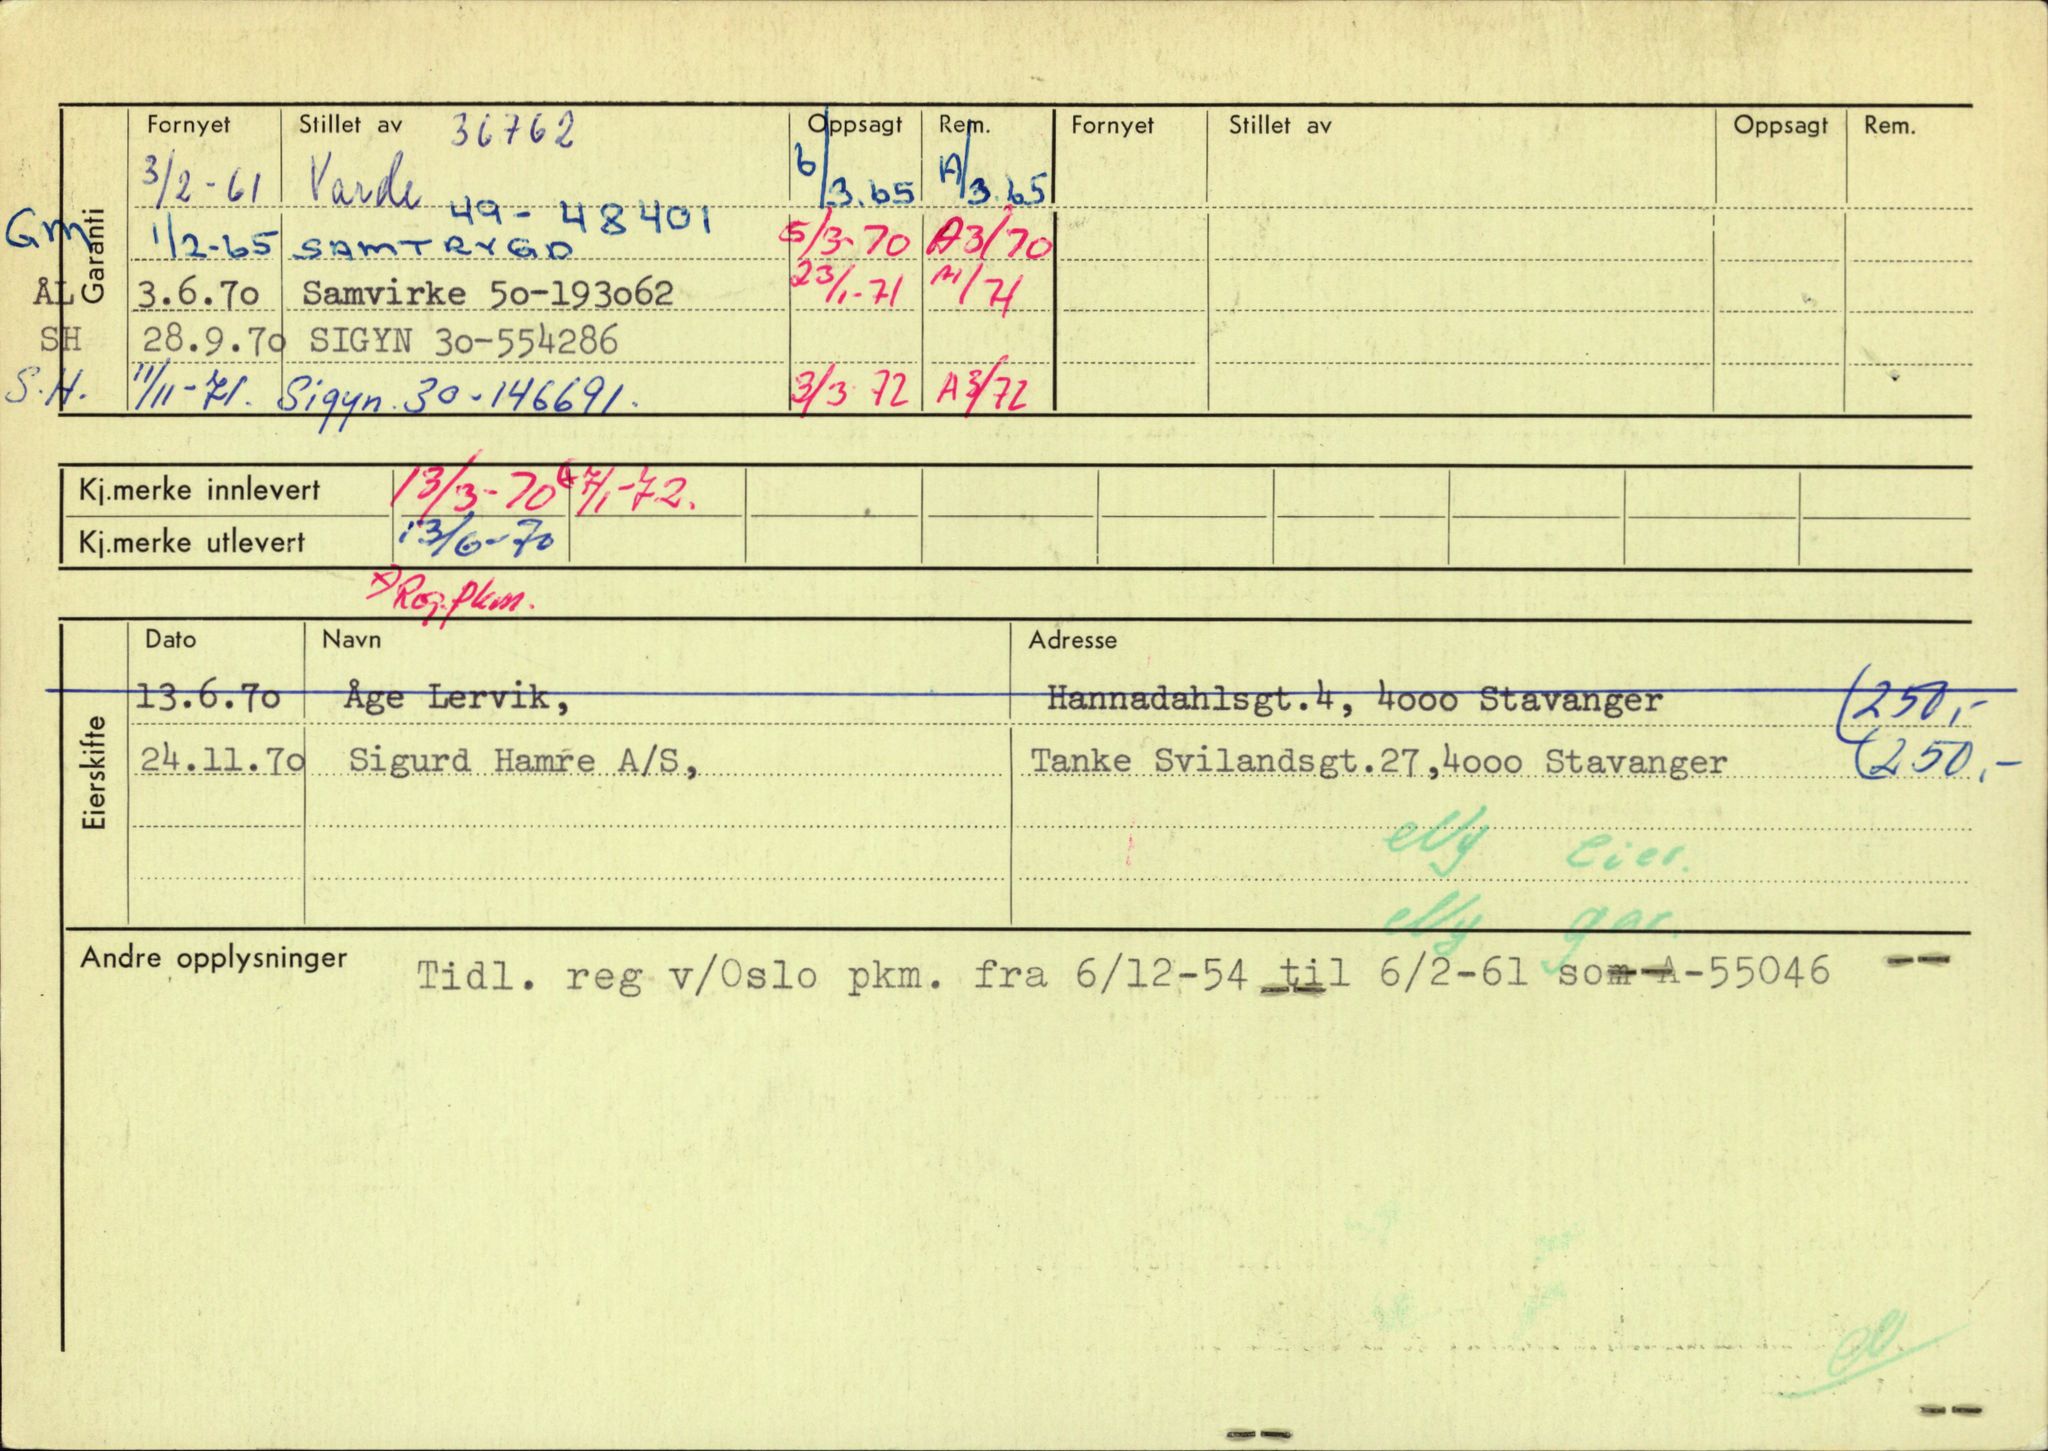 Garanti
Fornyet Stillet av 36762 Oppsagt Rem. Fornyet Stillet av Oppsagt Rem.
3/2-61 Varde 6/3.65 A/3.65
49-48401
Gm 1/2-65 SAMTRYGD 5/3-70 A3/70
ÅL 3.6.70 Samvirke 50-193062 23/1-71 /71
SH 28.9.70 SIGYN 30-554286
S.H. 11/11-71. Sigyn. 30-146691. 3/3 72 A3/72
Kj.merke innlevert 13/3-70 7/1-72.
Kj.merke utlevert 13/6-70
x) Rog.pkm.
Eierskifte
Dato Navn Adresse
13.6.70 Åge Lervik, Hannadahlsgt.4, 4000 Stavanger (250,-
24.11.70 Sigurd Hamre A/S, Tanke Svilandsgt.27,4000 Stavanger (250,-
Ny Eier.
Ny gar.
Andre opplysninger Tidl. reg v/Oslo pkm. fra 6/12-54 til 6/2-61 som A-55046